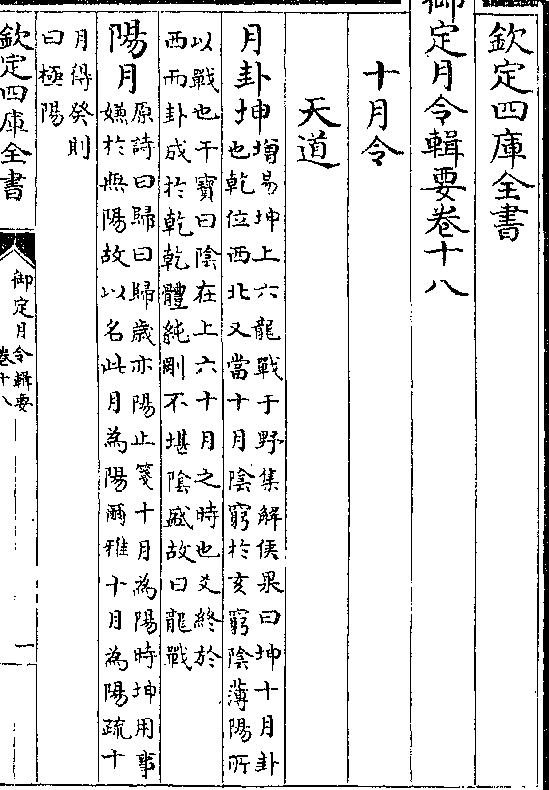 欽定四庫全書
御定月令輯要卷十八
十月令
天道
月卦坤增易坤上六龍戰于野集解侯果曰坤十月卦
也乾位西北又當十月陰窮於亥窮陰薄陽所
以戰也干寶曰陰在上六十月之時也爻終於
酉而卦成於乾乾體純剛不堪陰盛故曰龍戰
陽月原詩曰歸曰歸歲亦陽止箋十月為陽時坤用事
嫌於無陽故以名此月為陽爾雅十月為陽疏十
月得癸則
曰極陽
欽定四庫全書
御定月令輯要
卷十八
一